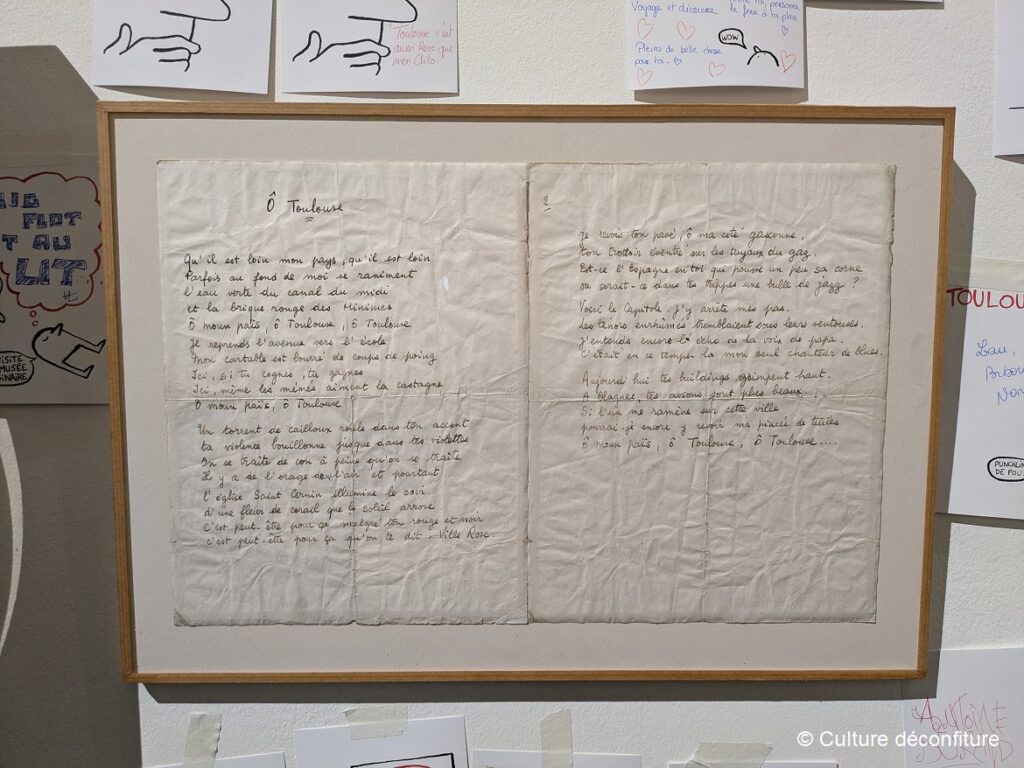 Toulouse c'est
aussi Rose que
mon Clito.
Voyage et découvre
personne
le fera à ta place
Pleins de belle chose
pour toi.
WOW
FLOT
T AU
LIT
VISITE
MUSÉE
GINAIRE
Ô Toulouse
Qu'il est loin mon pays, qu'il est loin
Parfois au fond de moi se raniment
l'eau verte du canal du midi
et la brique rouge des Minimes
Ô moun païs, ô Toulouse, ô Toulouse
Je reprends l'avenue vers l'école
Mon cartable est bourré de coups de poing
Ici, si tu cognes, tu gagnes
Ici, même les mémés aiment la castagne
Ô moun païs, ô Toulouse
Un torrent de cailloux roule dans ton accent
ta violence bouillonne jusque dans tes violettes
On se traite de con à peine qu'on se traite
Il y a de l'orage dans l'air et pourtant
l'église Saint Cernin illumine le soir
d'une fleur de corail que le soleil arrose
c'est peut-être pour ça malgré ton rouge et noir
c'est peut-être pour ça qu'on te dit. Ville Rose.
2
Je revois ton pavé, ô ma cité gasconne,
ton trottoir éventré sur les tuyaux du gaz.
Est-ce l'Espagne en toi qui pousse un peu sa corne
ou serait-ce dans tes trippes une bulle de jazz ?
Voici le Capitole. j'y arrête mes pas.
les ténors enrhumés tremblaient sous leurs ventouses.
J'entends encore l'écho de la voix de papa.
C'était en ce temps-là mon seul chanteur de blues.
Aujourd'hui tes buildings grimpent haut.
A Blagnac, tes avions sont plus beaux.
Si l'un me ramène sur cette ville
pourrai-je encore y revoir ma pincée de tuiles
Ô moun païs, ô Toulouse, ô Toulouse....
TOULOU
Lau,
PUNCHLIN
DE FOU
ANTOINE
© Culture déconfiture